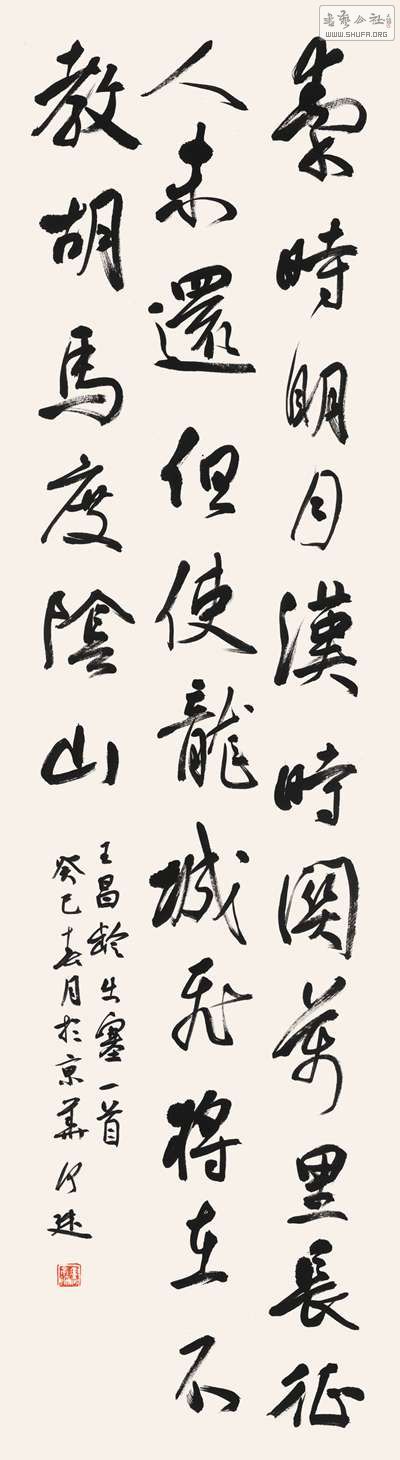 秦時明月漢時關萬里長征
人未還但使龍城飛將在不
教胡馬度陰山
王昌齡出塞一首
癸巳春月於京華
書藝公社
WWW.SHUFA.ORG